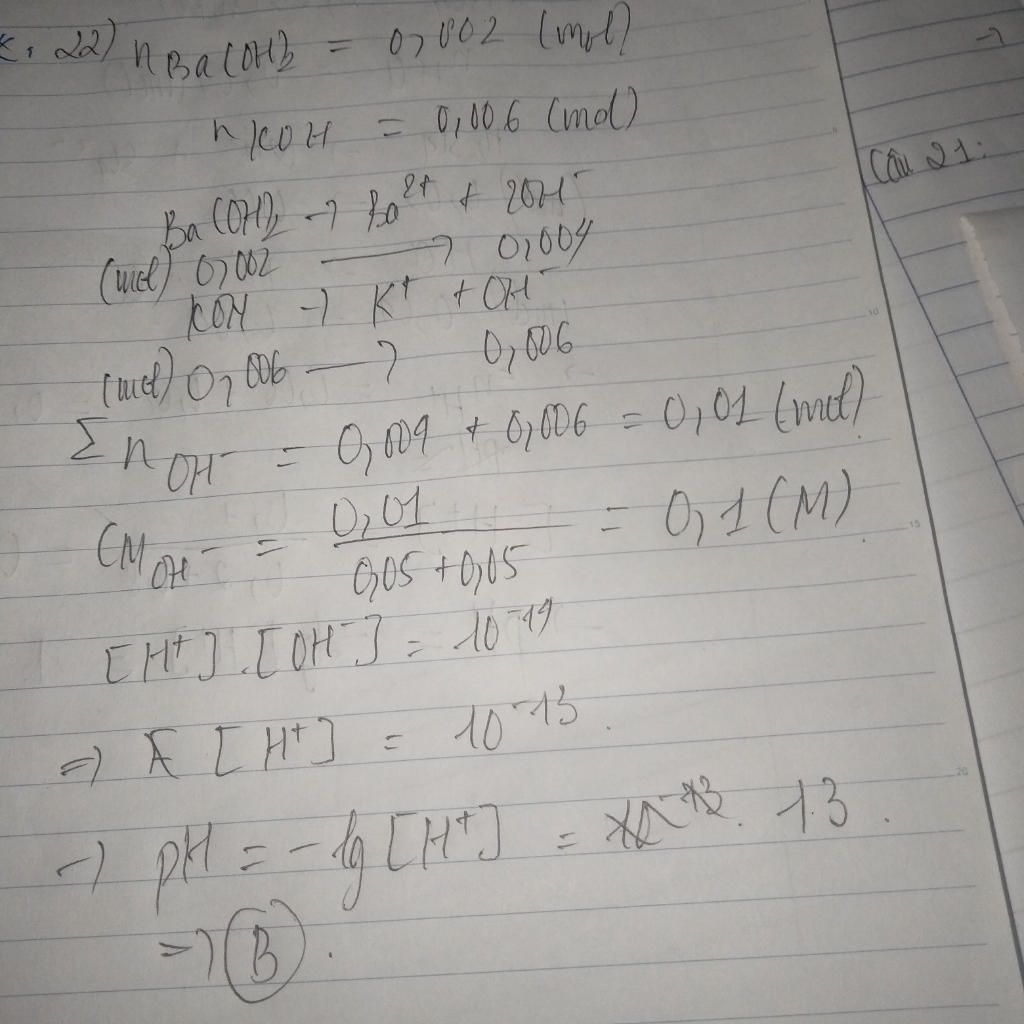 22) nBa(OH)2 = 0,002 (mol)
nKOH = 0,006 (mol)
Ba(OH)2 → Ba2+ + 2OH-
(mol) 0,002 → 0,004
KOH → K+ + OH-
(mol) 0,006 → 0,006
Σ nOH- = 0,004 + 0,006 = 0,01 (mol)
CM OH- = 0,01 / 0,05 + 0,05 = 0,1 (M)
[H+].[OH-] = 10-14
=> [H+] = 10-13.
→ pH = -lg [H+] = 13.
=> B.
Câu 21: